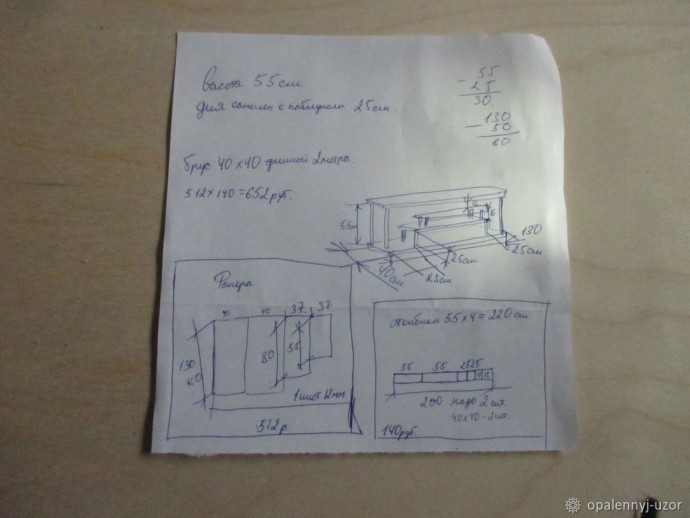 высота 55 см
для сапожек с каблуками 25 см.
55
- 25
30.
130
- 50
80
брус 40 х 40 длиной 2 метра.
512 + 140 = 652 руб.
55см
40 см
25см
25см
25см
130
Фанера
40 40 37 37
130
80
55
1 лист 12мм
512 р
столбики 55 х 4 = 220 см
55 55 25 25
200 надо 2 шт.
40х40 - 2 шт.
140 руб.
opalennyj-uzor